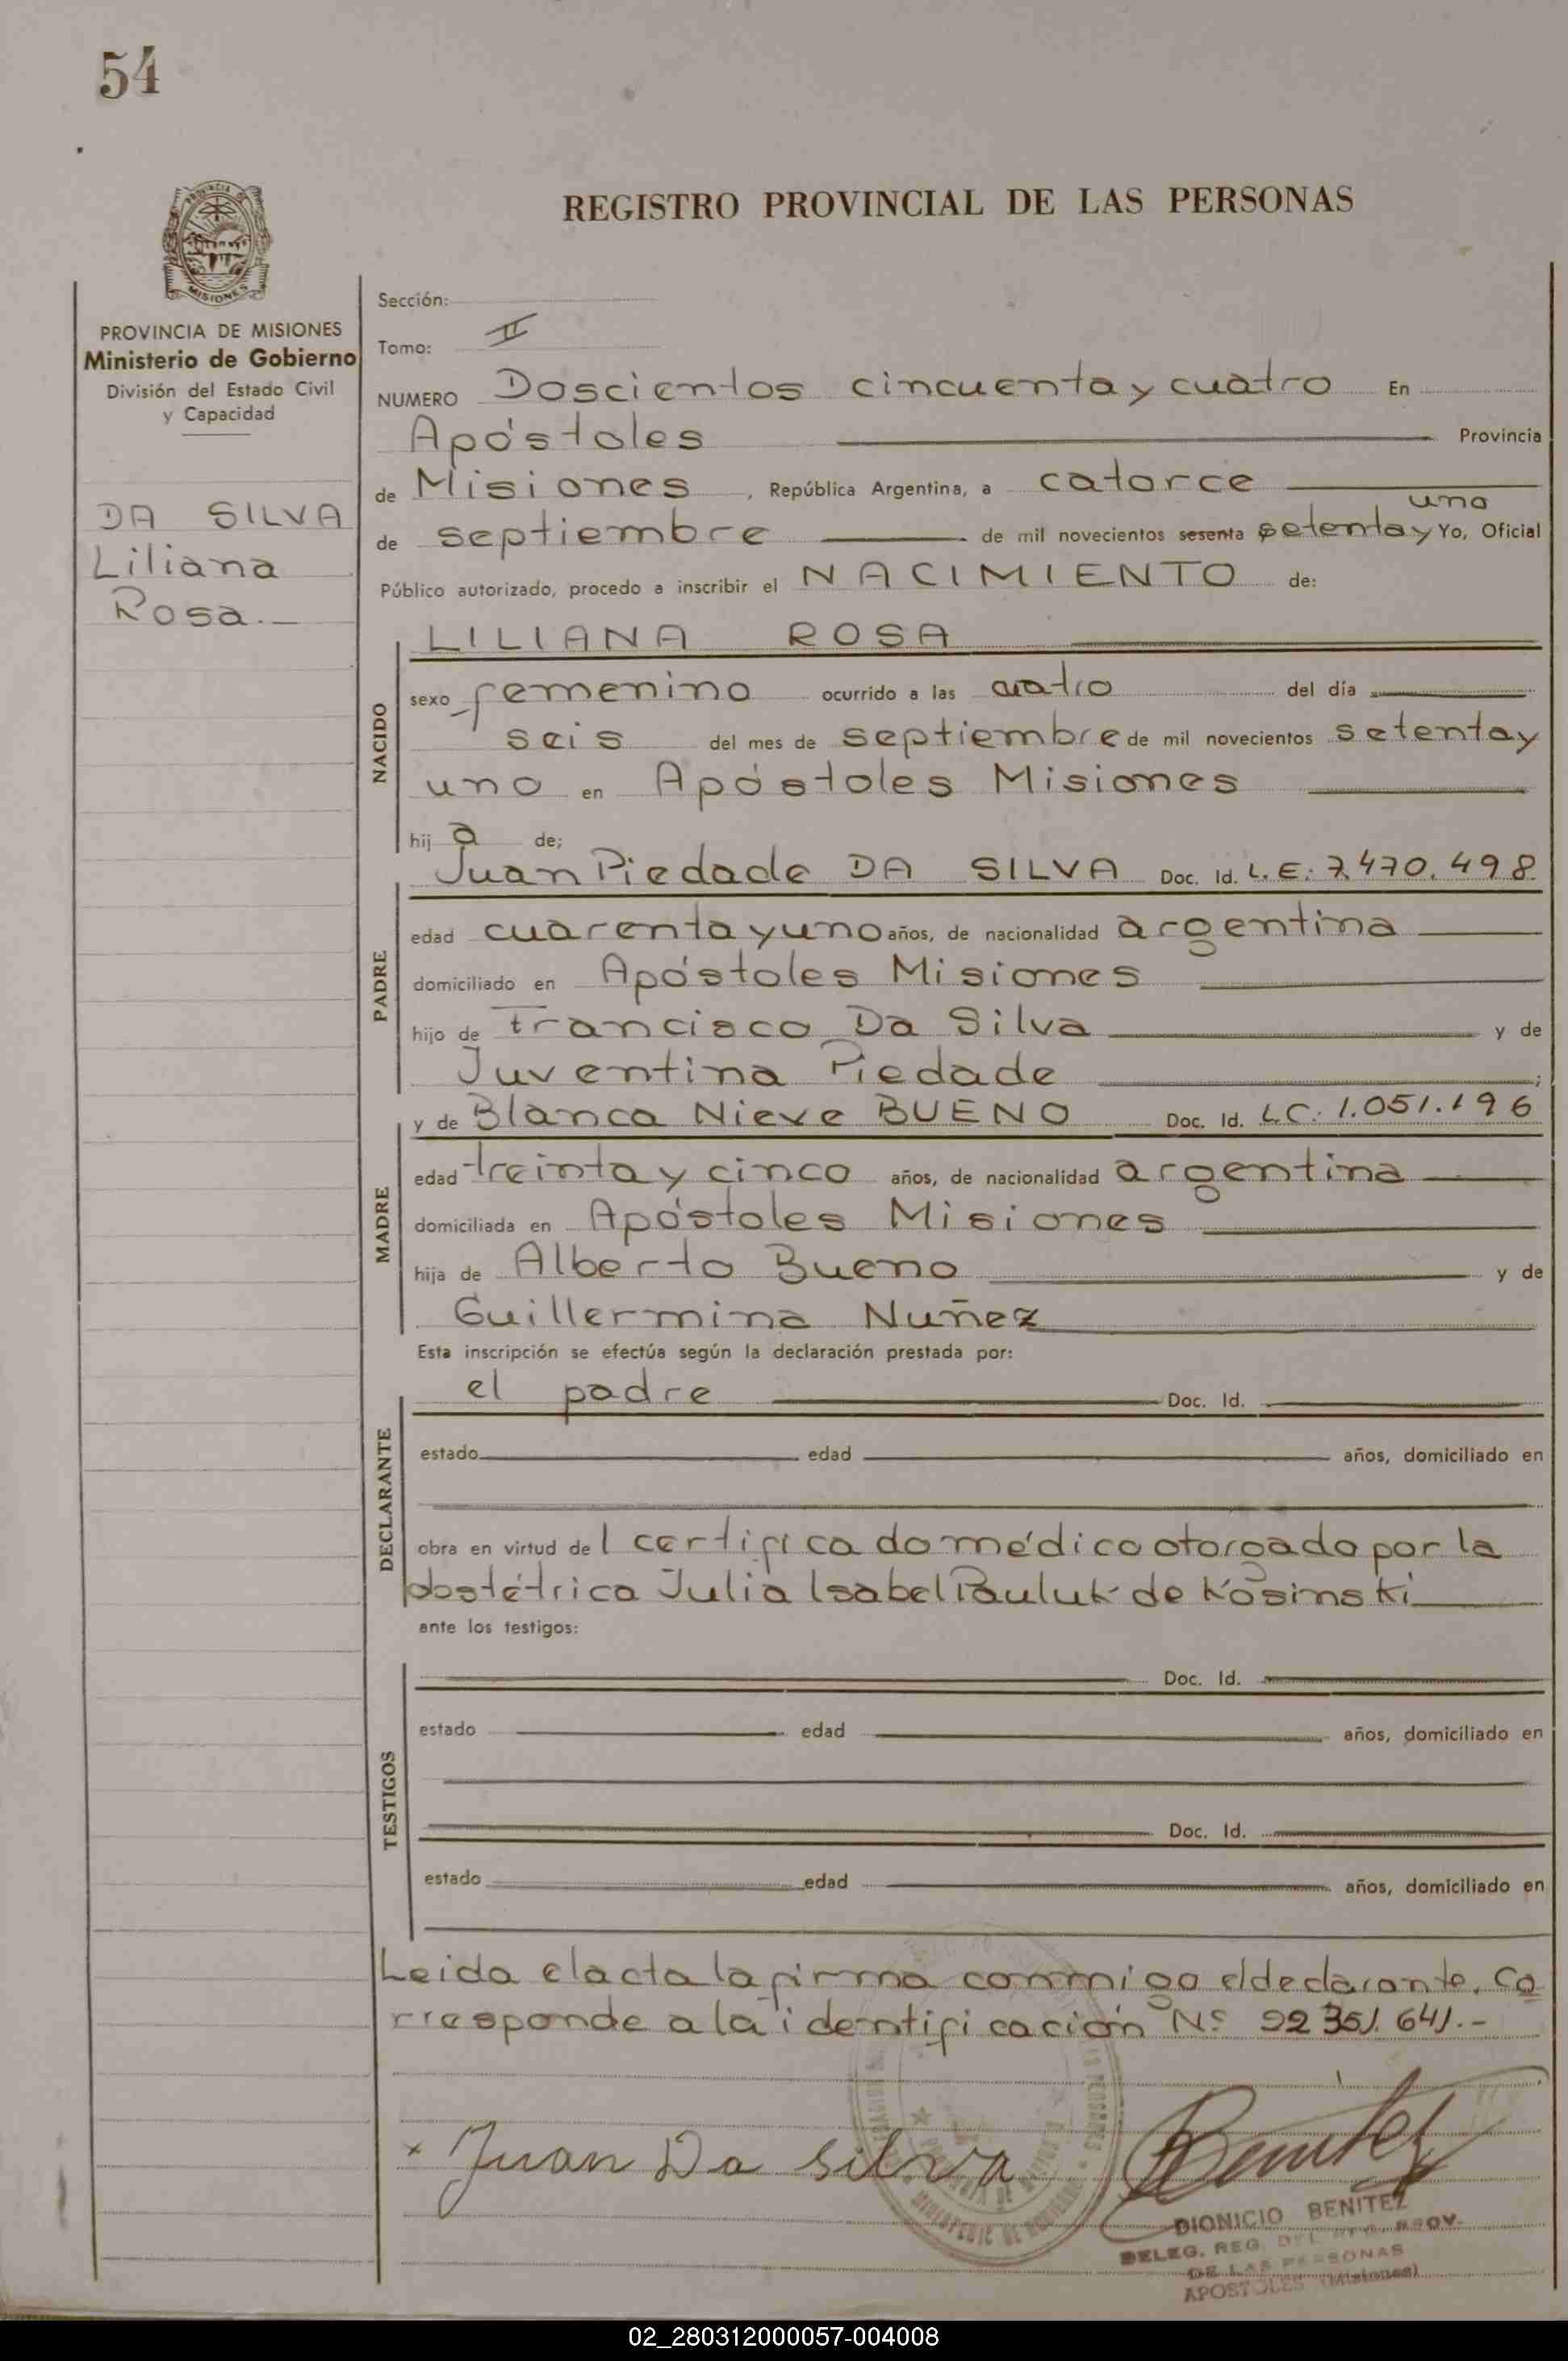 54
PROVINCIA DE
MISIONES
REGISTRO PROVINCIAL DE LAS PERSONAS
PROVINCIA DE MISIONES
Ministerio de Gobierno
División del Estado Civil
y Capacidad
DA SILVA
Liliana
Rosa.—
Sección:
Tomo: II
NUMERO Doscientos cincuenta y cuatro En
Apóstoles Provincia
de Misiones, República Argentina, a catorce
uno
de septiembre de mil novecientos sesenta setenta y Yo, Oficial
Público autorizado, procedo a inscribir el NACIMIENTO de:
NACIDO
LILIANA ROSA
sexo femenino ocurrido a las cuatro del día
seis del mes de septiembre de mil novecientos setenta y
uno en Apóstoles Misiones
hij a de;
PADRE
Juan Piedade DA SILVA Doc. Id. L.E. 7.470.498
edad cuarenta y uno años, de nacionalidad argentina
domiciliado en Apóstoles Misiones
hijo de Francisco Da Silva y de
Juventina Piedade ;
MADRE
y de Blanca Nieve BUENO Doc. Id. L.C. 1.051.196
edad treinta y cinco años, de nacionalidad argentina
domiciliada en Apóstoles Misiones
hija de Alberto Bueno y de
Guillermina Nuñez
Esta inscripción se efectúa según la declaración prestada por:
DECLARANTE
el padre Doc. Id.
estado edad años, domiciliado en
obra en virtud del certificado médico otorgado por la
obstétrica Julia Isabel Pauluk de Kosinski
ante los testigos:
TESTIGOS
Doc. Id.
estado edad años, domiciliado en
Doc. Id.
estado edad años, domiciliado en
Leida el acta la firma conmigo el declarante. Co
rresponde a la identificación Nº 22.351.641.-
x Juan Da silva Benitez
DIONICIO BENITEZ
DELEG. REG. DEL PROV.
DE LAS PERSONAS
APOSTOLES (Misiones)
02_280312000057-004008